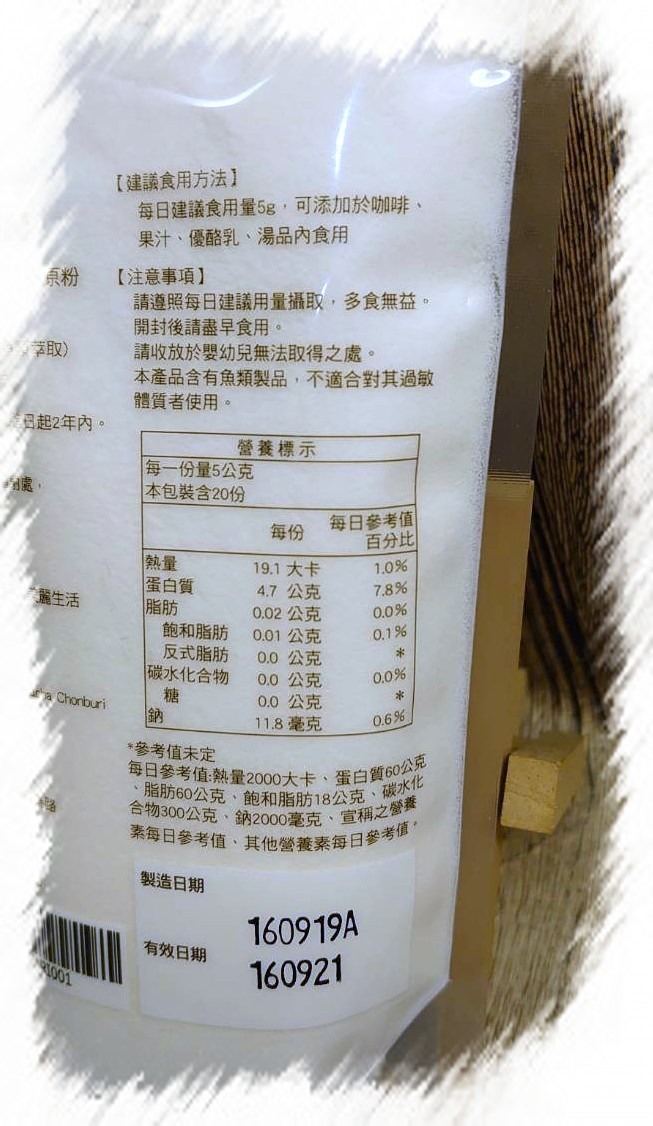 【建議食用方法】
每日建議食用量5g，可添加於咖啡、
果汁、優酪乳、湯品內食用
原粉
【注意事項】
請遵照每日建議用量攝取，多食無益。
開封後請盡早食用。
萃取)
請收放於嬰幼兒無法取得之處。
本產品含有魚類製品，不適合對其過敏
體質者使用。
日起2年內。
處，
麗生活
Chonburi
營養標示
每一份量5公克
本包裝含20份
每份 每日參考值
百分比
熱量 19.1 大卡 1.0%
蛋白質 4.7 公克 7.8%
脂肪 0.02 公克 0.0%
飽和脂肪 0.01 公克 0.1%
反式脂肪 0.0 公克 *
碳水化合物 0.0 公克 0.0%
糖 0.0 公克 *
鈉 11.8 毫克 0.6%
*參考值未定
每日參考值:熱量2000大卡、蛋白質60公克
、脂肪60公克、飽和脂肪18公克、碳水化
合物300公克、鈉2000毫克、宣稱之營養
素每日參考值、其他營養素每日參考值。
製造日期
160919A
有效日期
160921
1001